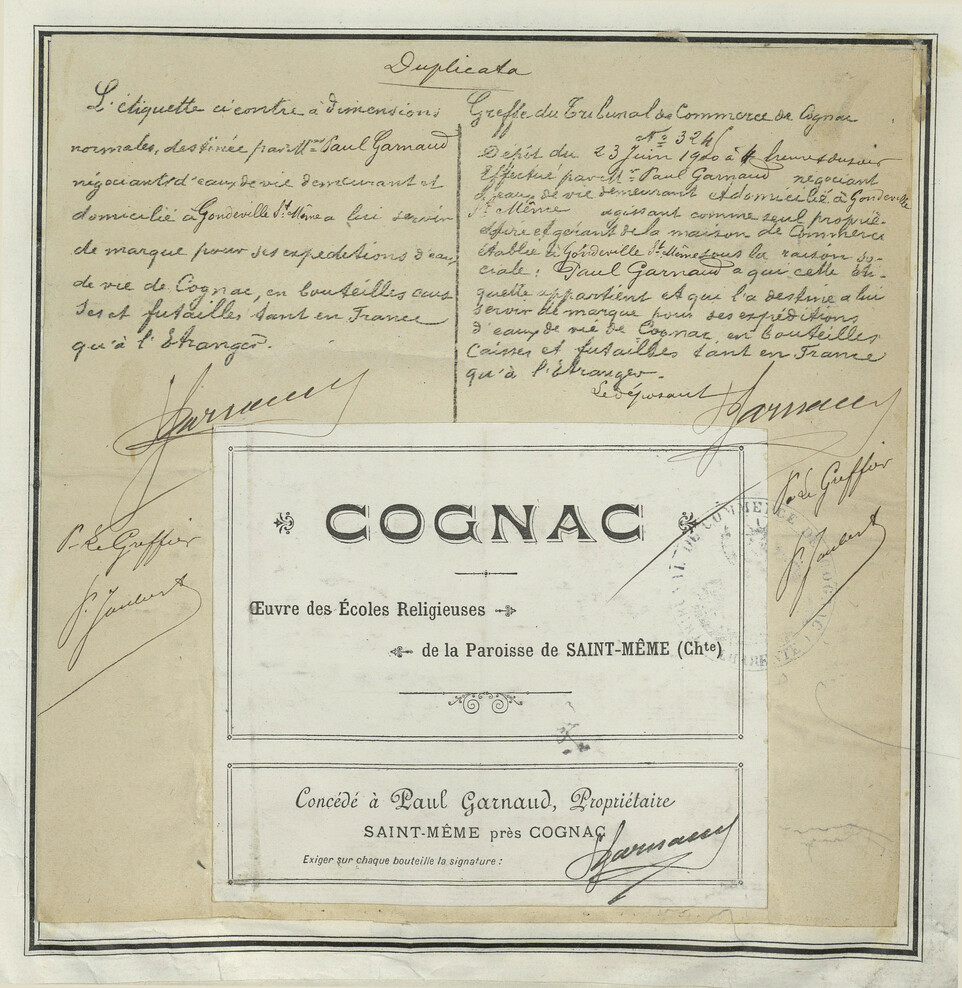 Duplicata
L'étiquette ci contre à dimensions
normales, destinée par Mr Paul Garnaud
négociant d'eaux de vie demeurant et
domicilié à Gondeville St Même a lui servir
de marque pour ses expeditions d'eaux
de vie de Cognac, en bouteilles cais
ses et futailles tant en France
qu'à l'Etranger.
PGarnaud
Pr Le Greffier
Greffe du Tribunal de Commerce de Cognac
No 324
Dépôt du 23 Juin 1900 à 4 heures du soir
Effectué par Mr Paul Garnaud négociant
d'eaux de vie demeurant et domicilié à Gondeville
St Même agissant comme seul proprié-
taire et gérant de la maison de Commerce
établie à Gondeville St Même sous la raison so-
ciale: Paul Garnaud a qui cette éti-
quette appartient et qui l'a destine a lui
servir de marque pour ses expéditions
d'eaux de vie de Cognac, en bouteilles
Caisses et futailles tant en France
qu'à l'Etranger.
Le déposant
PGarnaud
Pr Le Greffier
COGNAC
Œuvre des Écoles Religieuses
de la Paroisse de SAINT-MÊME (Chte)
DE COMMERCE DE COGNAC
CHARENTE
Concédé à Paul Garnaud, Propriétaire
SAINT-MÊME près COGNAC
Exiger sur chaque bouteille la signature :
PGarnaud